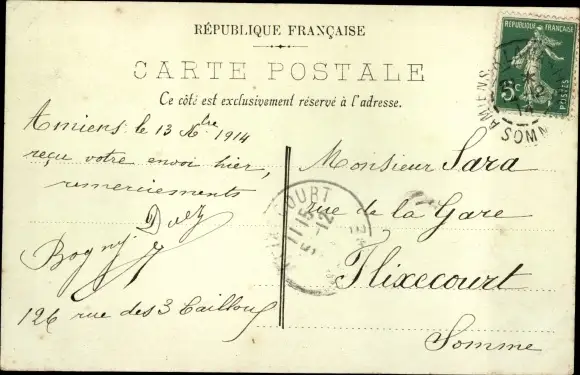 RÉPUBLIQUE FRANÇAISE
CARTE POSTALE
Ce côté est exclusivement réservé à l'adresse.
RÉPUBLIQUE FRANÇAISE
5c
POSTES
AMIENS
SOMME
Amiens le 13 Xbre 1914
reçu votre envoi hier,
remerciements
Bogny Duez
126 rue des 3 Cailloux
COURT
11-15
5-12
Monsieur Sara
rue de la Gare
Flixecourt
Somme